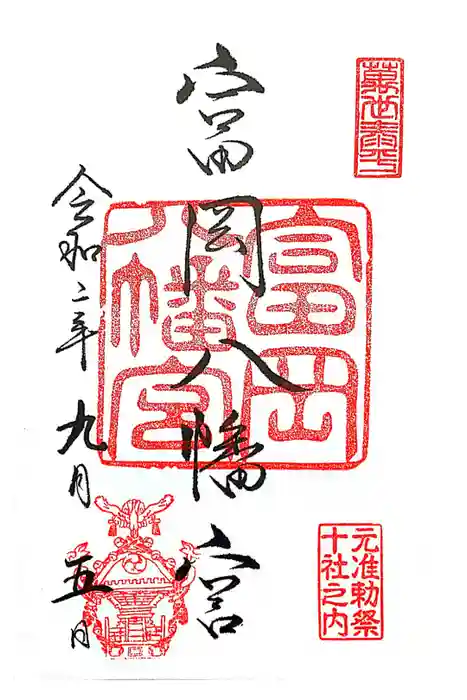 萬世泰平
富岡八幡宮
富岡八幡宮
元准勅祭
十社之内
令和二年九月五日